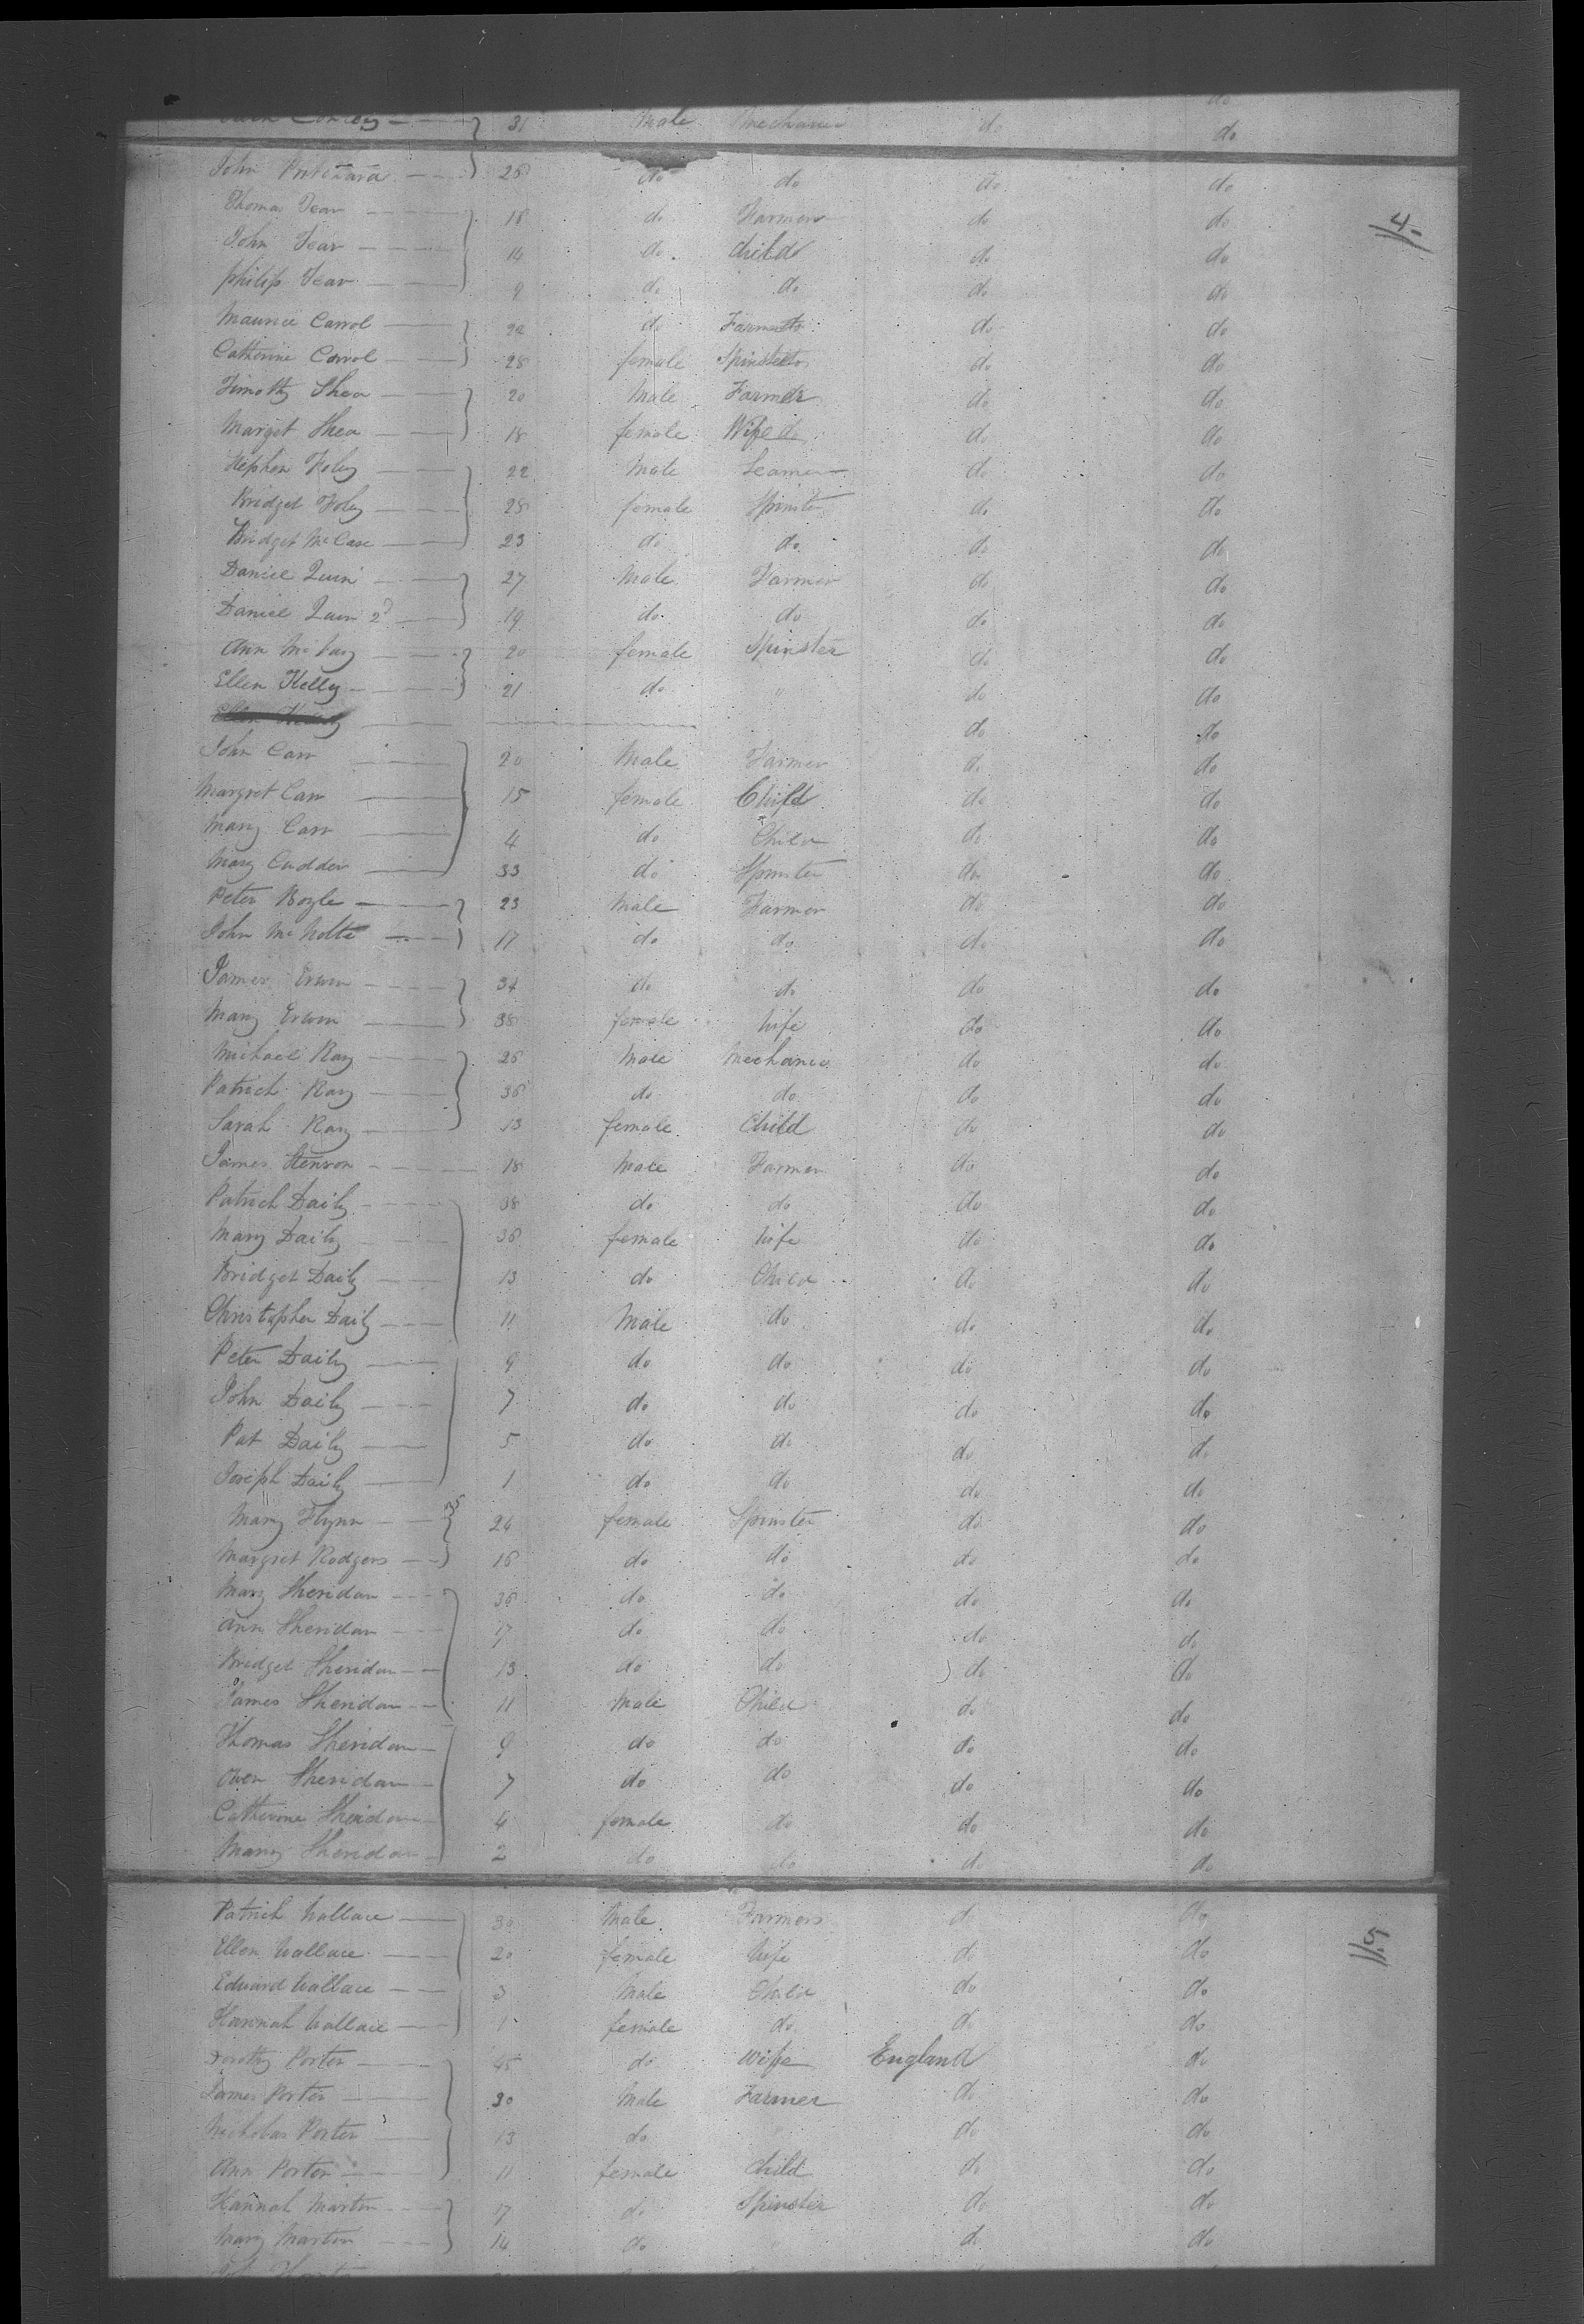 do
31 Male Mechanic do do
John 26 do do do do
Thomas Fear 18 do Farmer do do
4.
John Fear 14 do Child do do
Philip Fear 9 do do do do
Maurice Carrol 22 do do do
Catherine Carrol 28 female Spinster do do
Timothy Shea 20 Male Farmer do do
Marget Shea 18 female Wife do do do
Stephen Foley 22 Male Seaman do do
Bridget Foley 28 female Spinster do do
Bridget McCase 23 do do do do
Daniel Quin 27 Male Farmer do do
Daniel Quin 2d 19 do do do do
Ann 20 female Spinster do do
Ellen Kelly 21 do " do do
do do
John Carr 20 Male Farmer do do
Margret Carr 15 female Child do do
Mary Carr 4 do Child do do
Mary Cudden 33 do Spinster do do
Peter Boyle 23 Male Farmer do do
John McNolte 17 do do do do
James Erwin 34 do do do do
Mary Erwin 38 female Wife do do
Michael Ray 26 Male Mechanic do do
Patrick Ray 36 do do do do
Sarah Ray 13 female Child do do
James Stenson 18 Male Farmer do do
Patrick Daily 38 do do do do
Mary Daily 36 female Wife do do
Bridget Daily 13 do Child do do
Christopher Daily 11 Male do do do
Peter Daily 9 do do do do
John Daily 7 do do do do
Pat Daily 5 do do do do
Joseph Daily 1 do do do do
Mary Flynn 24 female Spinster do do
Margret Rodgers 16 do do do do
Mary Sheridan 36 do do do do
Ann Sheridan 17 do do do do
Bridget Sheridan 13 do do do do
James Sheridan 11 Male Child do do
Thomas Sheridan 9 do do do do
Owen Sheridan 7 do do do do
Catherine Sheridan 4 female do do do
Mary Sheridan 2 do do do do
Patrick Wallace 30 Male Farmer do do
5.
Ellen Wallace 20 female Wife do do
Edward Wallace 3 Male Child do do
Hannah Wallace 1 female do do do
Dorothy Porter 45 do Wife England do
James Porter 30 Male Farmer do do
Nicholas Porter 13 do do do
Ann Porter 11 female Child do do
Hannah Martin 17 do Spinster do do
Mary Martin 14 do do do